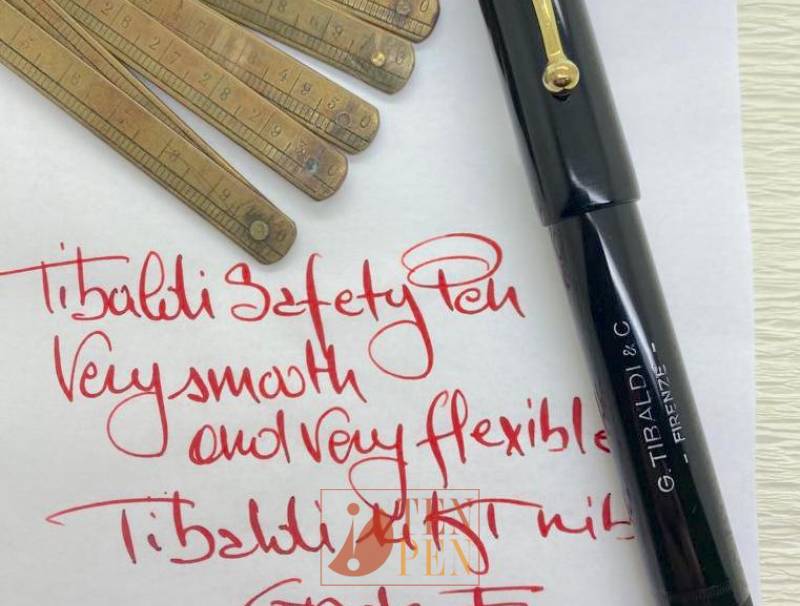 Tibaldi Safety Pen
Very smooth
and very flexible
Tibaldi 14KT nib
G. TIBALDI & C
- FIRENZE -
TEN
PEN